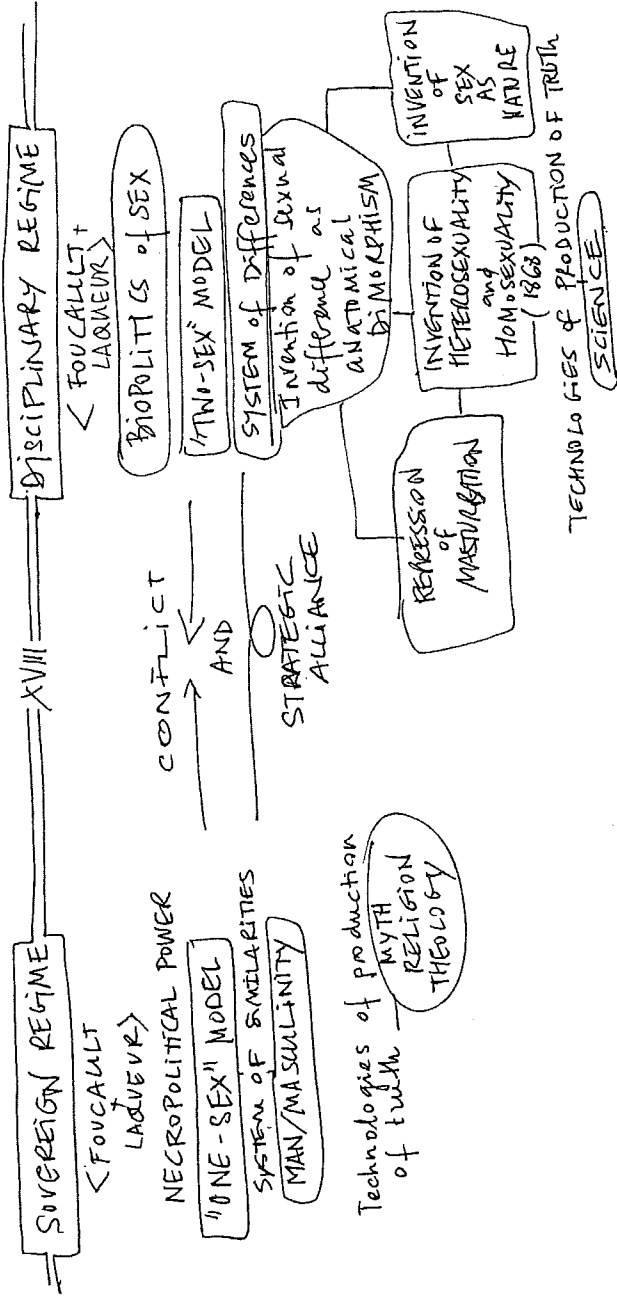 SOVEREIGN REGIME
<FOUCAULT
+
LAQUEUR>
NECROPOLITICAL POWER
"ONE-SEX" MODEL
SYSTEM OF SIMILARITIES
MAN/MASCULINITY
Technologies of production
of truth
MYTH
RELIGION
THEOLOGY
XVIII
CONFLICT
AND
STRATEGIC
ALLIANCE
DISCIPLINARY REGIME
<FOUCAULT +
LAQUEUR>
BIOPOLITICS of SEX
"TWO-SEX" MODEL
SYSTEM of Differences
Invention of sexual
difference as
anatomical
DIMORPHISM
REPRESSION
of
MASTURBATION
INVENTION OF
HETEROSEXUALITY
and
HOMOSEXUALITY
(1868)
INVENTION
OF
SEX
AS
NATURE
TECHNOLOGIES of PRODUCTION OF TRUTH
SCIENCE